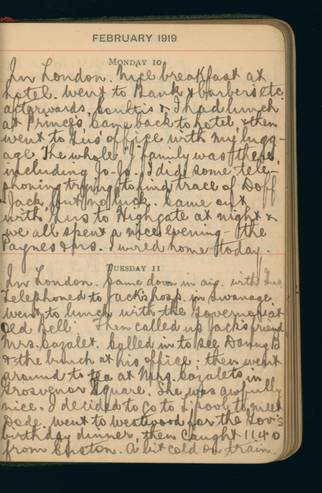 FEBRUARY 1919
MONDAY 10
In London. Nice breakfast at
hotel. Went to Bank & barbers etc.
afterwards. & I had lunch
at Princes. Came back to hotel, & then
went to Gus' office with my lugg-
age. The whole family was there,
including Jo-Jo. I did some tele-
phoning trying to find trace of Doff
& Jack, but no luck. Came out
with Gus to Highgate at night &
we all spent a nice evening - the
Paynes & us. I wired home today.
TUESDAY 11
In London. Came down in a.m. with Gus
Telephoned to Jack's hosp. in Swanage.
Went to lunch with the Governor at
Old Bell. Then called up Jack's friend
Mrs. Cazalet. Called in to see Danny B
& the bunch at his office. Then went
around to tea at Mrs. Cazalets, in
Grosvenor Square. She was awfully
nice. I decided to go to L'pool to meet
Dode. Went to Westwood for the Gov's
birthday dinner, then caught 11.40
from Euston. A bit cold on train.